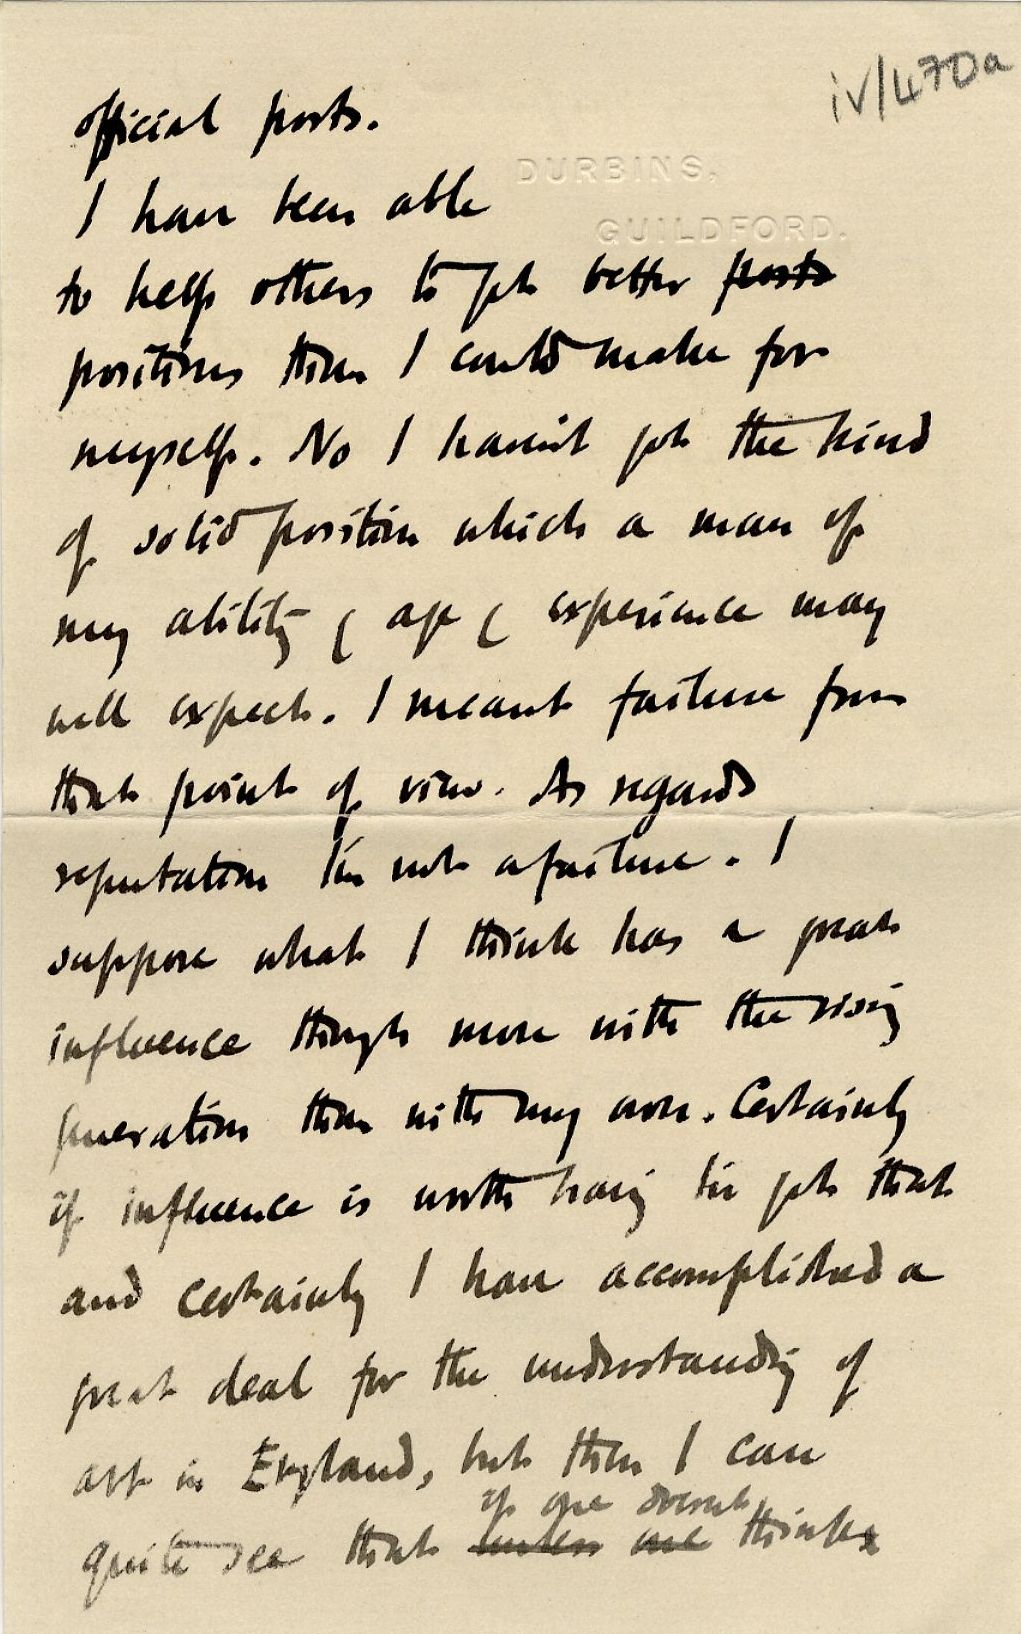 iv/470a
official posts.
DURBINS,
I have been able
GUILDFORD.
to help others to get better posts
positions than I could make for
myself. No I havn't got the kind
of solid position which a man of
my ability & age & experience may
well expect. I meant failure from
that point of view. As regards
reputation I'm not a failure. I
suppose what I think has a great
influence though more with the rising
generation than with my own. Certainly
if influence is worth having I've got that
and certainly I have accomplished a
great deal for the understanding of
art in England, but then I can
if one doesnt
quite see that unless one thinks